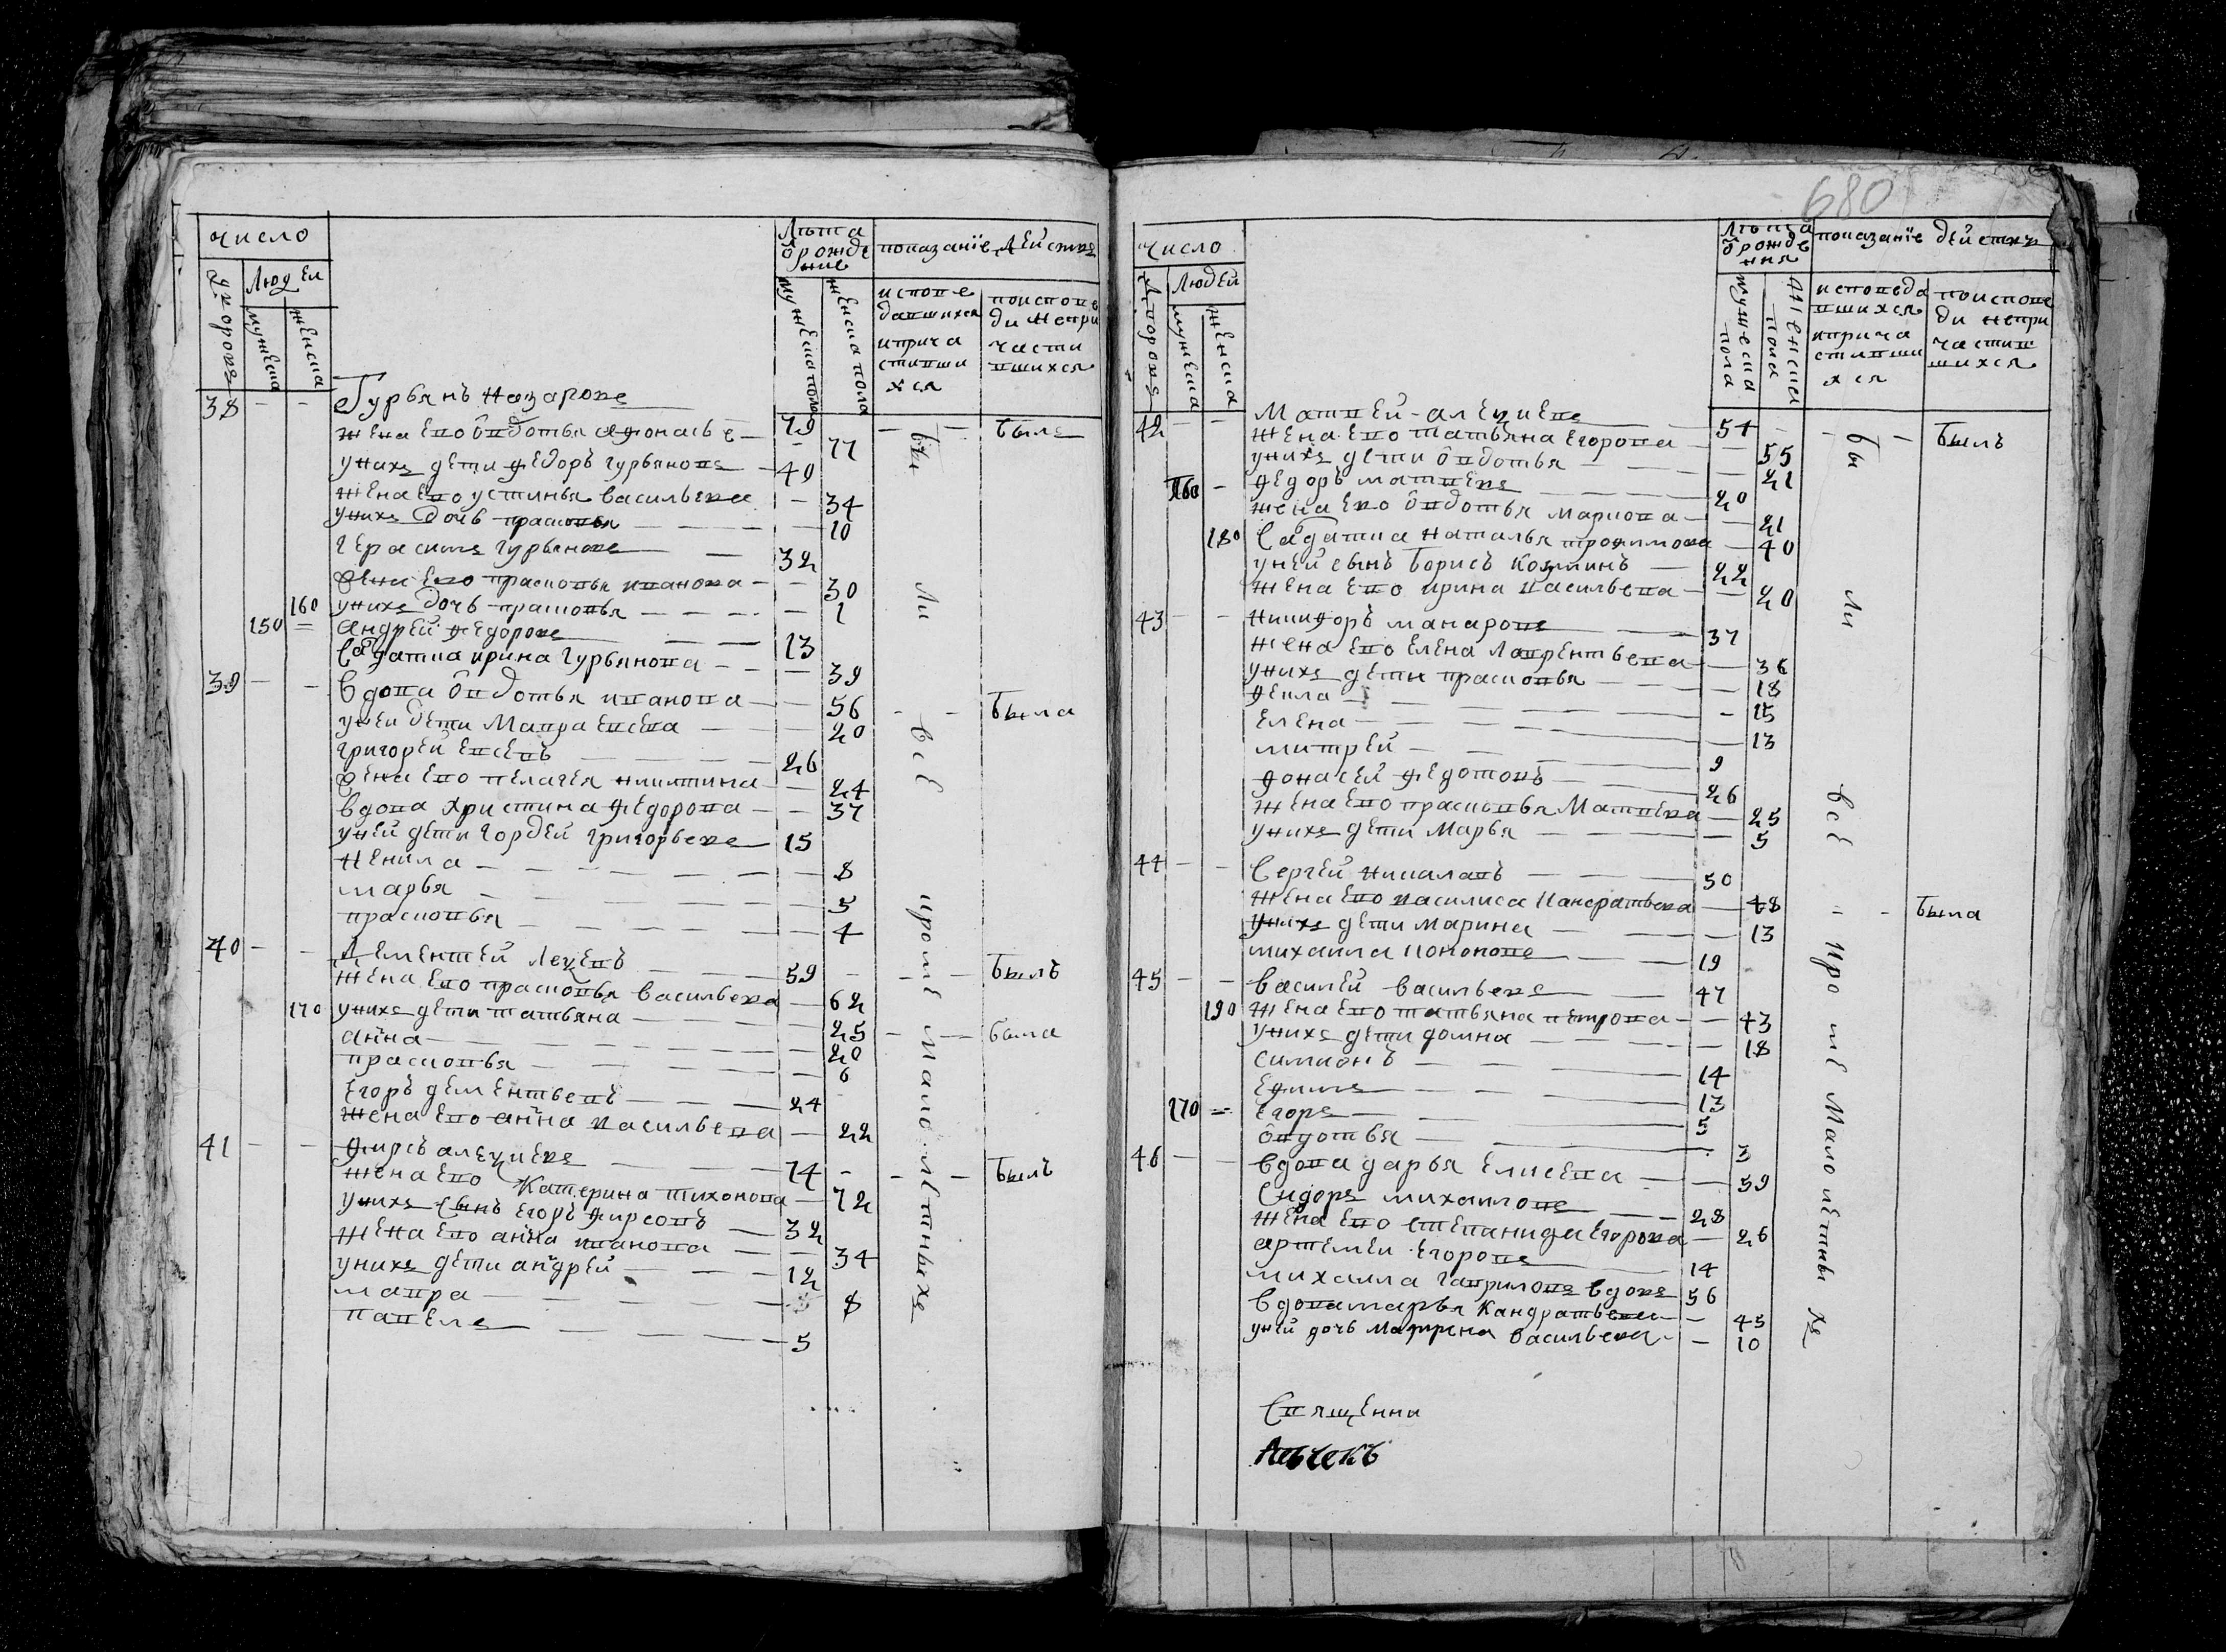 число
Лѣта
ѿ рожде
ние
показанїе дѣйствъ
дворовъ
людей
мужеска
женска
мужеска пола
женска пола
исповедавшихся
и прича
стивши
хся
по испове
ди непри
части
вшихся
38 - - Гурьянъ Назаровъ 79 - - былъ
жена ево Овдотья Афонасье - 77
у нихъ дети Федоръ Гурьяновъ 49
жена ево Устинья Васильева - 34
у нихъ дочь Прасковья - 10
Герасимъ Гурьяновъ 32
жена ево Прасковья Иванова - 30
160 у нихъ дочь Прасковья - 1
150 = Андрей Федоровъ 13
Салдатка Ирина Гурьянова - 39
39 - - Вдова Овдотья Иванова - 56 - - была
у ней дети Мавра Евсева 20
Григорей Евсевъ 26
жена ево Пелагея Никитина - 24
вдова Христина Федорова - 37
у ней дети Гордей Григорьевъ 15
Ненила - 8
Марья - 5
Прасковья - 4
40 - - Дементей Лекѣевъ 59 - - былъ
жена ево Прасковья Васильева - 62
170 у нихъ дети Татьяна - 25 - - была
Анна - 20
Прасковья - 6
Егоръ Дементьевъ 24
жена ево Анна Васильева - 22
41 - - Фирсъ Алекѣевъ 74 - - былъ
жена ево Катерина Тихонова - 72
у нихъ сынъ Егоръ Фирсовъ 32
жена ево Анна Иванова - 34
у нихъ дети Андрей 12
Мавра 8
Павелъ 5
бы ли все кроме малолетныхъ
680
число
Лѣта
ѿ рожде
ния
показанїе действъ
дворовъ
людей
мужеска
женска
мужеска
пола
женска
пола
исповеда
вшихся
и прича
стивши
хся
по испове
ди непри
частив
шихся
42 - - Матвей Алекѣевъ 54 - - былъ
жена ево Татьяна Егорова - 55
у нихъ дети Овдотья - 21
160 - Федоръ Матвевъ 20
жена ево Овдотья Маркова - 21
180 Салдатка Наталья Трофимова - 40
у ней сынъ Борисъ Козминъ 22
жена ево Ирина Васильева - 20
43 - - Никифоръ Макаровъ 37
жена ево Елена Лаврентьева - 36
у нихъ дети Прасковья - 18
Фекла - 15
Елена - 13
Митрей 9
Фонасей Федотовъ 26
жена ево Прасковья Матвева - 25
у нихъ дети Марья - 5
44 - - Сергей Николавъ 50
жена ево Василиса Панкратьева - 48 - - была
у нихъ дети Марина - 13
Михайла Кононовъ 19
45 - - Василей Васильевъ 47
190 жена ево Татьяна Петрова - 43
у нихъ дети Домна - 18
Симионъ 14
Ефимъ 13
170 = Егоръ 5
Овдотья 3
46 - - Вдова Дарья Елисева - 59
Сидоръ Михайловъ 28
жена ево Степанида Егорова - 26
Артемей Егоровъ 14
Михайла Гавриловъ вдовъ 56
вдова Марья Кандратьева - 45
у ней дочь Матрена Васильева - 10
бы ли все кроме малолетныхъ
Священни